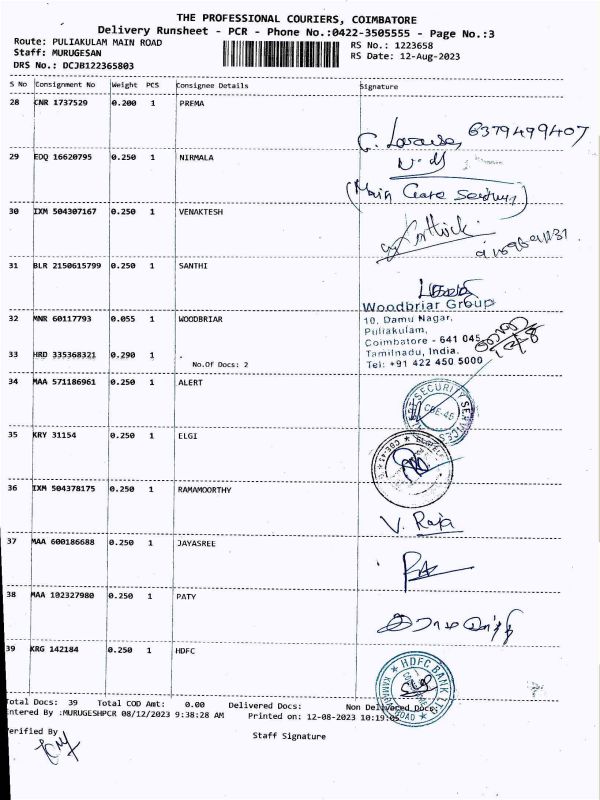 THE PROFESSIONAL COURIERS, COIMBATORE
Delivery Runsheet - PCR - Phone No.:0422-3505555 - Page No.:3
Route: PULIAKULAM MAIN ROAD
RS No.: 1223658
Staff: MURUGESAN
RS Date: 12-Aug-2023
DRS No.: DCJB122365803
S No Consignment No Weight PCS Consignee Details Signature
28 CNR 1737529 0.200 1 PREMA
6379499407
29 EDQ 16620795 0.250 1 NIRMALA
(Main Care
30 IXM 504307167 0.250 1 VENAKTESH
31 BLR 2150615799 0.250 1 SANTHI
Woodbriar Group
32 MNR 60117793 0.055 1 WOODBRIAR
10, Damu Nagar,
Puliakulam,
Coimbatore - 641 045
33 HRD 335368321 0.290 1
Tamilnadu, India.
No.Of Docs: 2
Tel: +91 422 450 5000
34 MAA 571186961 0.250 1 ALERT
SECURITY SERVICES
CBE-45
35 KRY 31154 0.250 1 ELGI
CBE-45
36 IXM 504378175 0.250 1 RAMAMOORTHY
V. Raja
37 MAA 600186688 0.250 1 JAYASREE
38 MAA 102327980 0.250 1 PATY
39 KRG 142184 0.250 1 HDFC
HDFC BANK LTD
ROAD
Total Docs: 39 Total COD Amt: 0.00 Delivered Docs: Non Delivered Docs:
Entered By :MURUGESHPCR 08/12/2023 9:38:28 AM Printed on: 12-08-2023 10:19:05
Verified By
Staff Signature